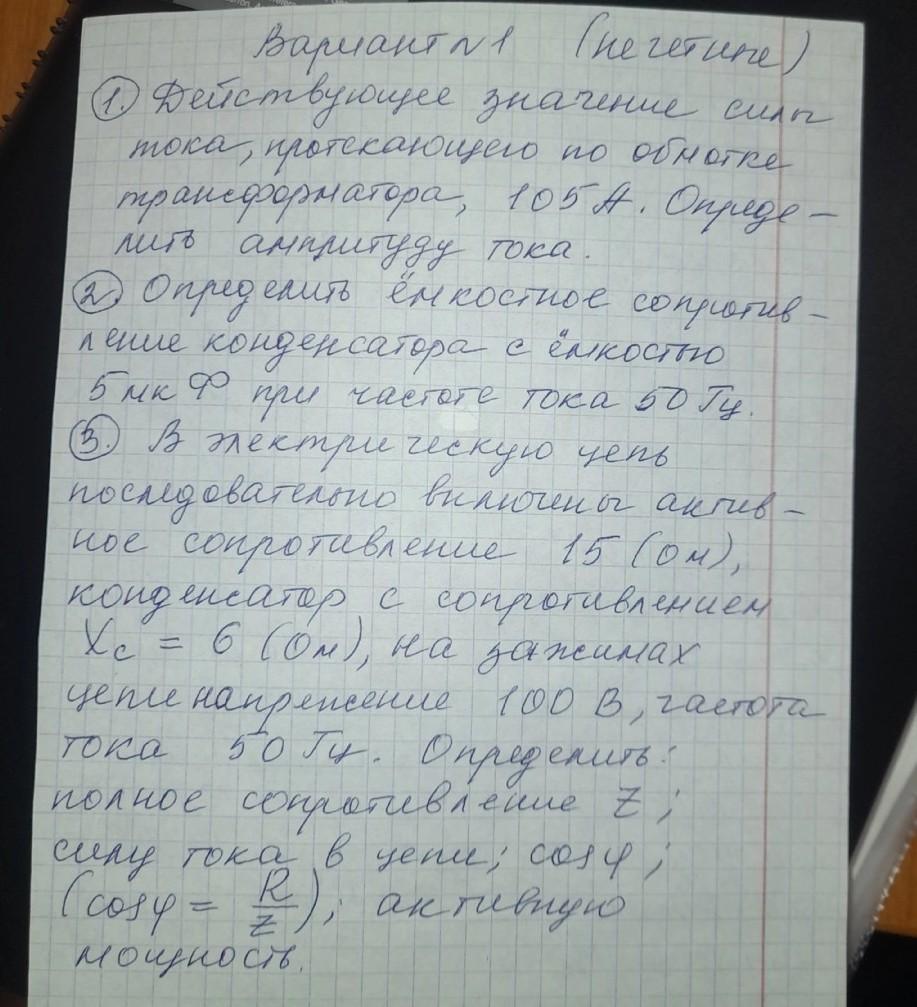 Вариант №1 (нечетные)
1. Действующее значение силы
тока, протекающего по обмотке
трансформатора, 105 А. Опреде-
лить амплитуду тока.
2. Определить ёмкостное сопротив-
ление конденсатора с ёмкостью
5 мкФ при частоте тока 50 Гц.
3. В электрическую цепь
последовательно включены актив-
ное сопротивление 15 (Ом),
конденсатор с сопротивлением
Xc = 6 (Ом), на зажимах
цепи напряжение 100 В, частота
тока 50 Гц. Определить:
полное сопротивление Z;
силу тока в цепи; cosφ;
(cosφ = R/Z); активную
мощность.